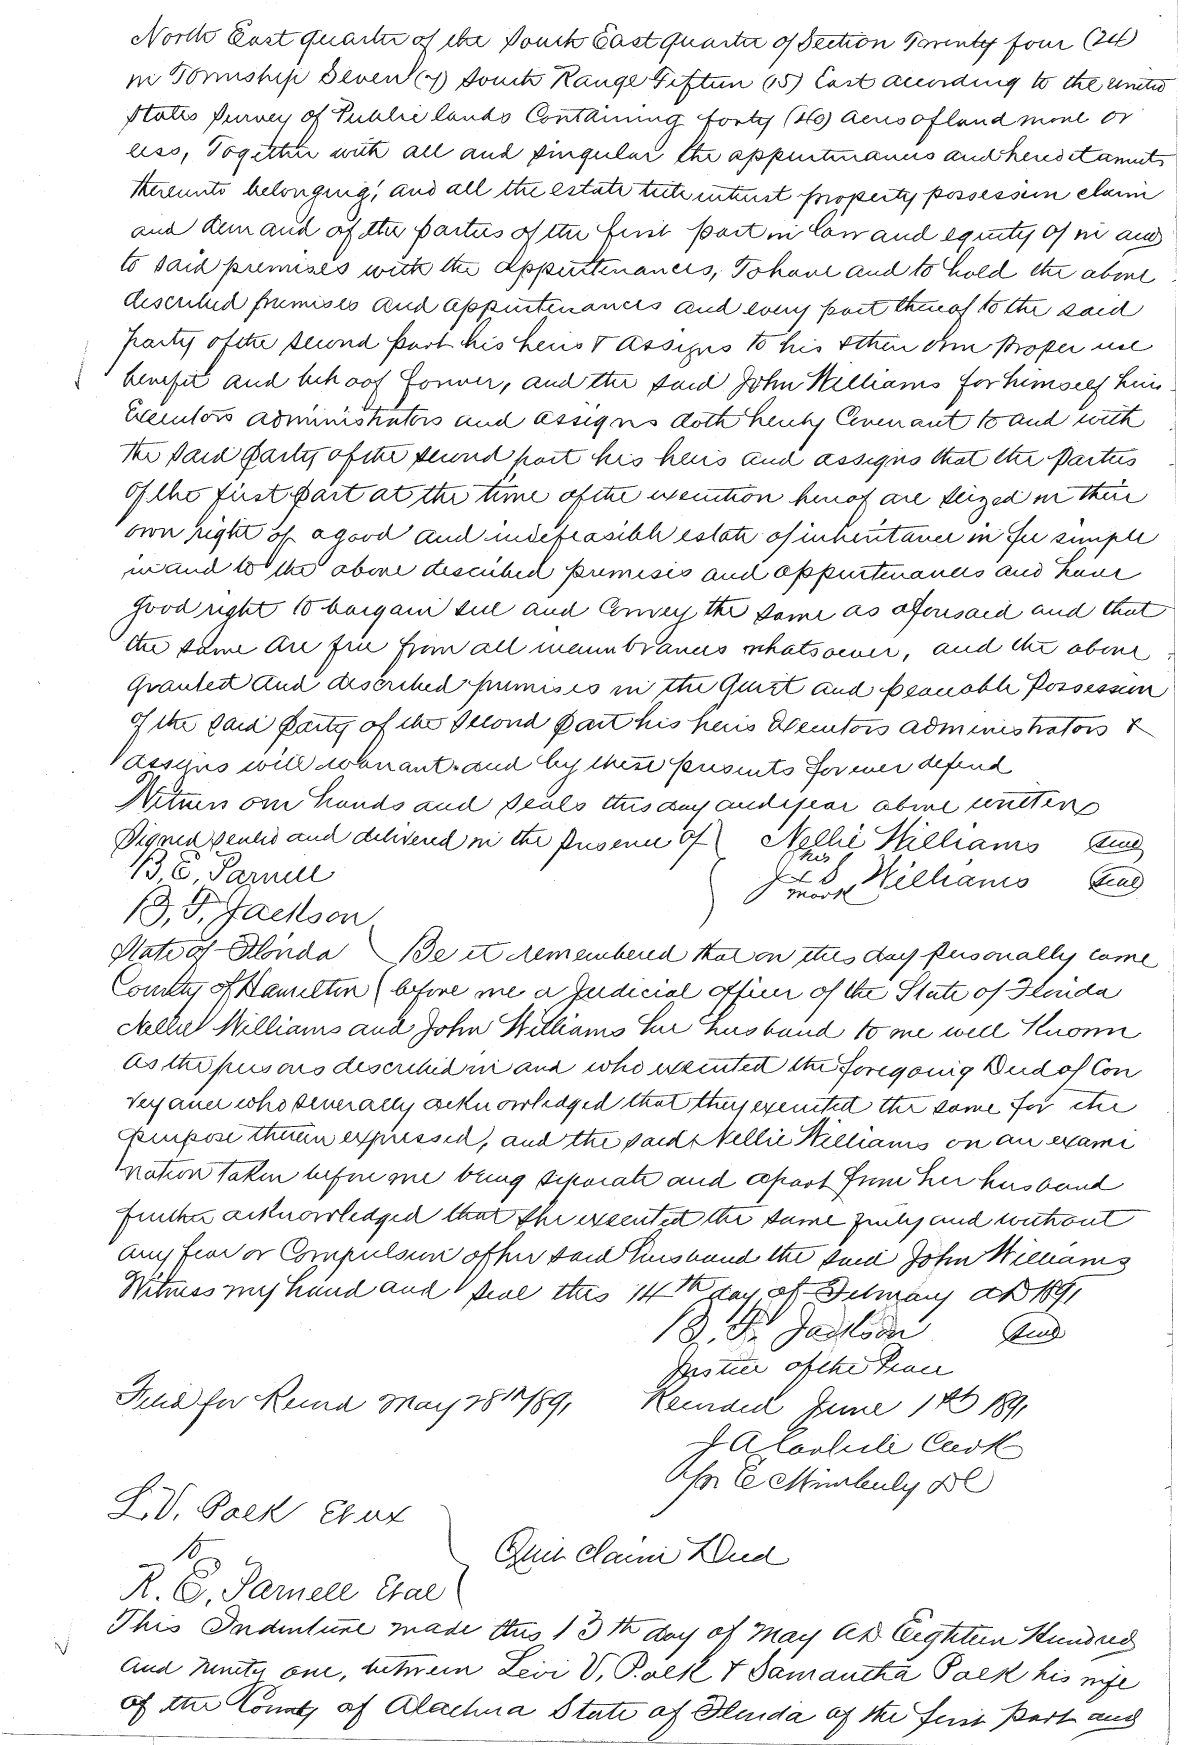 North East quarter of the South East quarter of Section Twenty four (24)
in Township Seven (7) South Range Fifteen (15) East according to the united
States Survey of Public lands Containing forty (40) acres of land more or
less, Together with all and singular the appurtenances and hereditaments
thereunto belonging, and all the estate title interest property possession claim
and demand of the parties of the first part in law and equity of in and
to said premises with the appurtenances, To have and to hold the above
described premises and appurtenances and every part thereof to the said
party of the second part his heirs & assigns to his & their own proper use
benefit and behoof forever, and the said John Williams for himself heirs
Executors administrators and assigns doth hereby Covenant to and with
the said party of the second part his heirs and assigns that the parties
of the first part at the time of the execution hereof are seized in their
own right of a good and indefeasible estate of inheritance in fee simple
in and to the above described premises and appurtenances and have
good right to bargain sell and Convey the same as aforesaid and that
the same are free from all incumbrances whatsoever, and the above
granted and described premises in the quiet and peaceable possession
of the said party of the second part his heirs Executors administrators &
assigns will warrant and by these presents forever defend
Witness our hands and seals this day and year above written
Signed sealed and delivered in the presence of Nellie Williams Seal
B. E. Parnell his Williams Seal
mark
B. F. Jackson
State of Florida Be it remembered that on this day personally came
County of Hamilton before me a Judicial officer of the State of Florida
Nellie Williams and John Williams her husband to me well Known
as the persons described in and who executed the foregoing Deed of Con
veyance who severally acknowledged that they executed the same for the
purpose therein expressed, and the said Nellie Williams on an exami
nation taken before me being separate and apart from her husband
further acknowledged that she executed the same freely and without
any fear or Compulsion of her said husband the said John Williams
Witness my hand and seal this 14th day of February AD 1891
B. F. Jackson Seal
Justice of the Peace
Filed for Record May 28th/891 Recorded June 1st 1891
J A Carlisle Clerk
Per E Wimberly DC
L. V. Polk Et ux
to
Quit claim Deed
R. E. Parnell Et al
This Indenture made this 13th day of May AD Eighteen Hundred
and ninety one, between Levi V. Polk & Samantha Polk his wife
of the County of Alachua State of Florida of the first part and